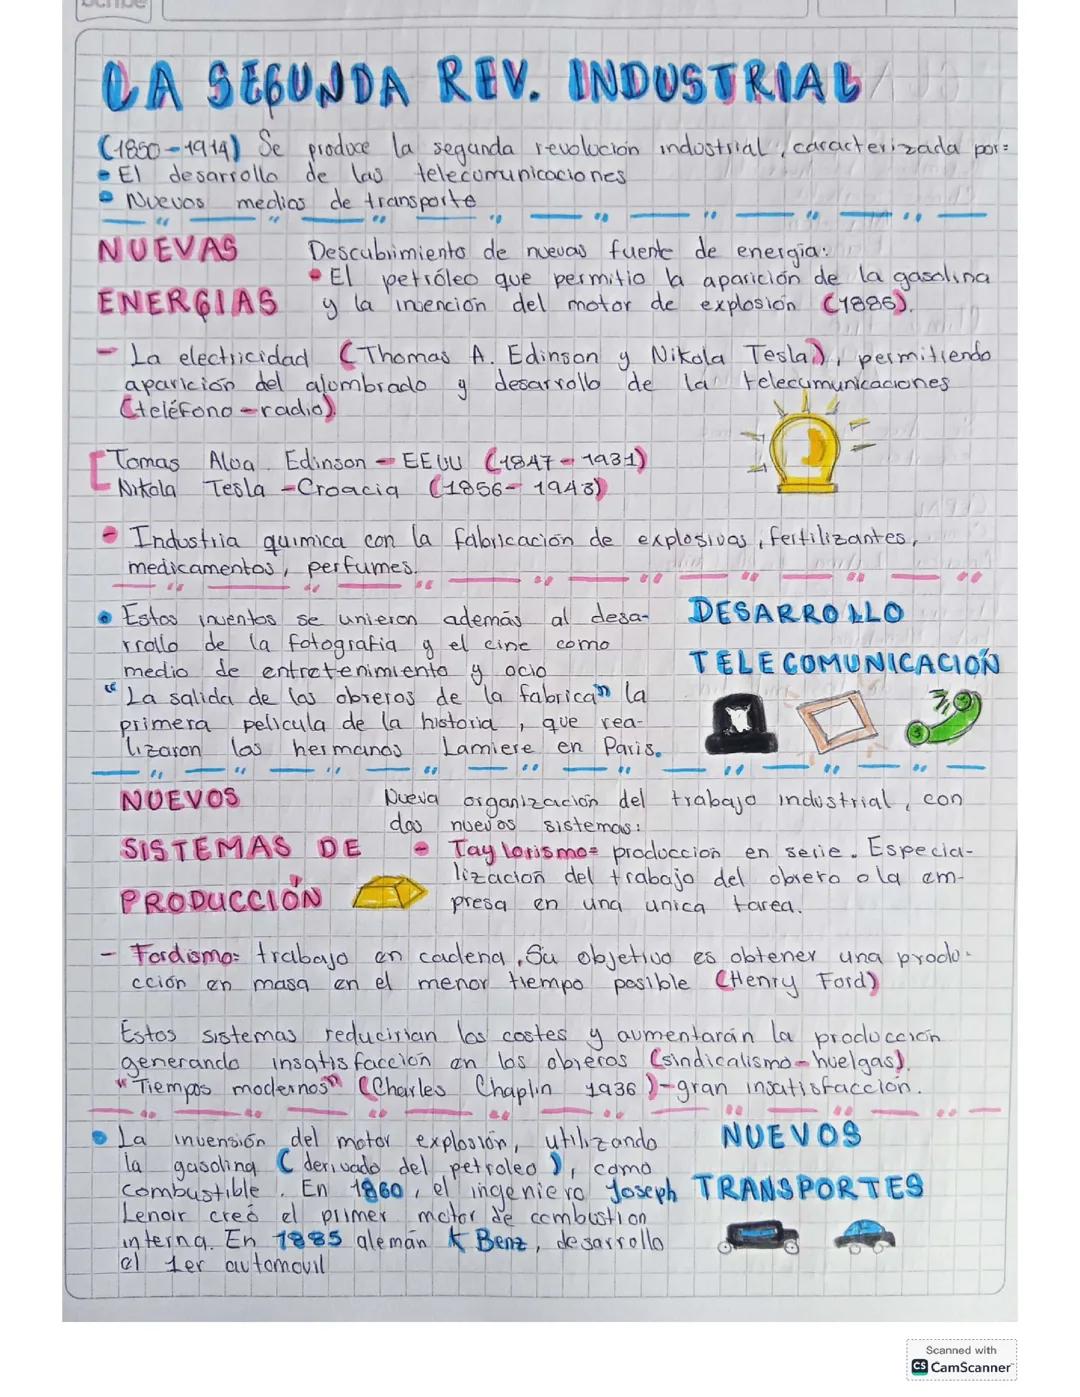 LA SEGUNDA REV. INDUSTRIAL
(1850-1914) Se produce la segunda revolución industrial, caracterizada por:
• El desarrollo de las telecomunicaciones
• Nuevos medios de transporte
NUEVAS
ENERGIAS
Descubrimiento de nuevas fuente de energía:
• El petróleo que permitio la aparición de la gasolina
y la invención del motor de explosión (1885).
- La electricidad (Thomas A. Edinson y Nikola Tesla), permitiendo
aparición del alumbrado y desarrollo de la telecumunicaciones
(teléfono-radio).
Tomas Alva Edinson - EEUU (1847 - 1931)
Nikola Tesla - Croacia (1856 - 1943)
• Industria química con la fabricación de explosivos, fertilizantes,
medicamentos, perfumes.
• Estos inventos se unieron además al desa-
rrollo de la fotografía y el cine como
medio de entretenimiento y ocio
"La salida de los obreros de la fabrica" la
primera película de la historia, que rea-
lizaron los hermanos Lamiere en Paris.
DESARROLLO
TELECOMUNICACIÓN
NUEVOS
SISTEMAS DE
PRODUCCIÓN
Nueva organización del trabajo industrial, con
dos nuevos sistemas:
- Taylorismo= producción en serie. Especia-
lización del trabajo del obrero o la em-
presa en una unica tarea.
- Fordismo= trabajo en cadena. Su objetivo es obtener una produ-
cción en masa en el menor tiempo posible (Henry Ford)
Estos sistemas reducirían los costes y aumentarán la producción
generando insatisfacción en los obreros (sindicalismo-huelgas).
"Tiempos modernos" (Charles Chaplin 1936)-gran insatisfacción.
• La invensión del motor explosión, utilizando
la gasolina (derivado del petroleo), como
combustible. En 1860, el ingeniero Joseph
Lenoir creó el primer motor de combustion
interna. En 1885 alemán K Benz, desarrollo
el 1er automovil
NUEVOS
TRANSPORTES
Scanned with
CS CamScanner